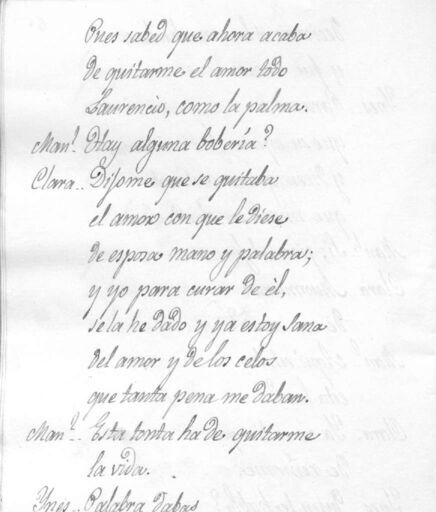 Pues sabed que ahora acaba
de quitarme el amor todo
Laurencio, como la palma.
Manl. Hay alguna bobería?
Clara.. Dijome que se quitaba
el amor con que le diese
de esposa mano y palabra;
y yo para curar de él,
se la he dado y ya estoy sana
del amor y de los celos
que tanta pena me daban.
Manl.. Esta tonta ha de quitarme
la vida.
Ynes.. Palabra dabas